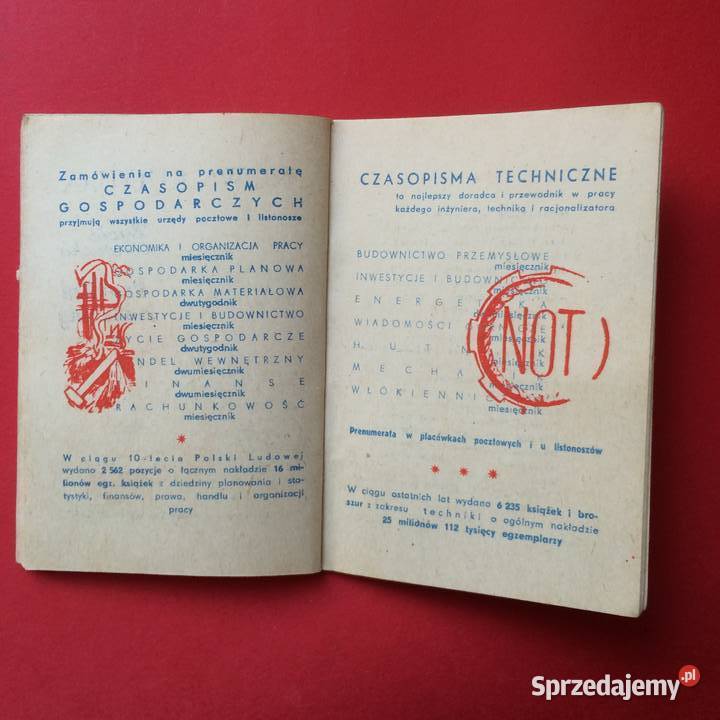 Zamówienia na prenumeratę
CZASOPISM
GOSPODARCZYCH
przyjmują wszystkie urzędy pocztowe i listonosze
EKONOMIKA I ORGANIZACJA PRACY
miesięcznik
GOSPODARKA PLANOWA
miesięcznik
GOSPODARKA MATERIAŁOWA
dwutygodnik
INWESTYCJE I BUDOWNICTWO
miesięcznik
ŻYCIE GOSPODARCZE
dwutygodnik
HANDEL WEWNĘTRZNY
dwumiesięcznik
FINANSE
dwumiesięcznik
RACHUNKOWOŚĆ
miesięcznik
W ciągu 10-lecia Polski Ludowej
wydano 2 562 pozycje o łącznym nakładzie 16 mi-
lionów egz. książek z dziedziny planowania i sta-
tystyki, finansów, prawa, handlu i organizacji
pracy
CZASOPISMA TECHNICZNE
to najlepszy doradca i przewodnik w pracy
każdego inżyniera, technika i racjonalizatora
BUDOWNICTWO PRZEMYSŁOWE
miesięcznik
INWESTYCJE I BUDOWNICTWO
miesięcznik
ENERGETYKA
dwumiesięcznik
WIADOMOŚCI
miesięcznik
HUTNIK
miesięcznik
MECHANIK
miesięcznik
WŁÓKIENNICTWO
miesięcznik
NOT
Prenumerata w placówkach pocztowych i u listonoszów
W ciągu ostatnich lat wydano 6 235 książek i bro-
szur z zakresu techniki o ogólnym nakładzie
25 milionów 112 tysięcy egzemplarzy
Sprzedajemy.pl